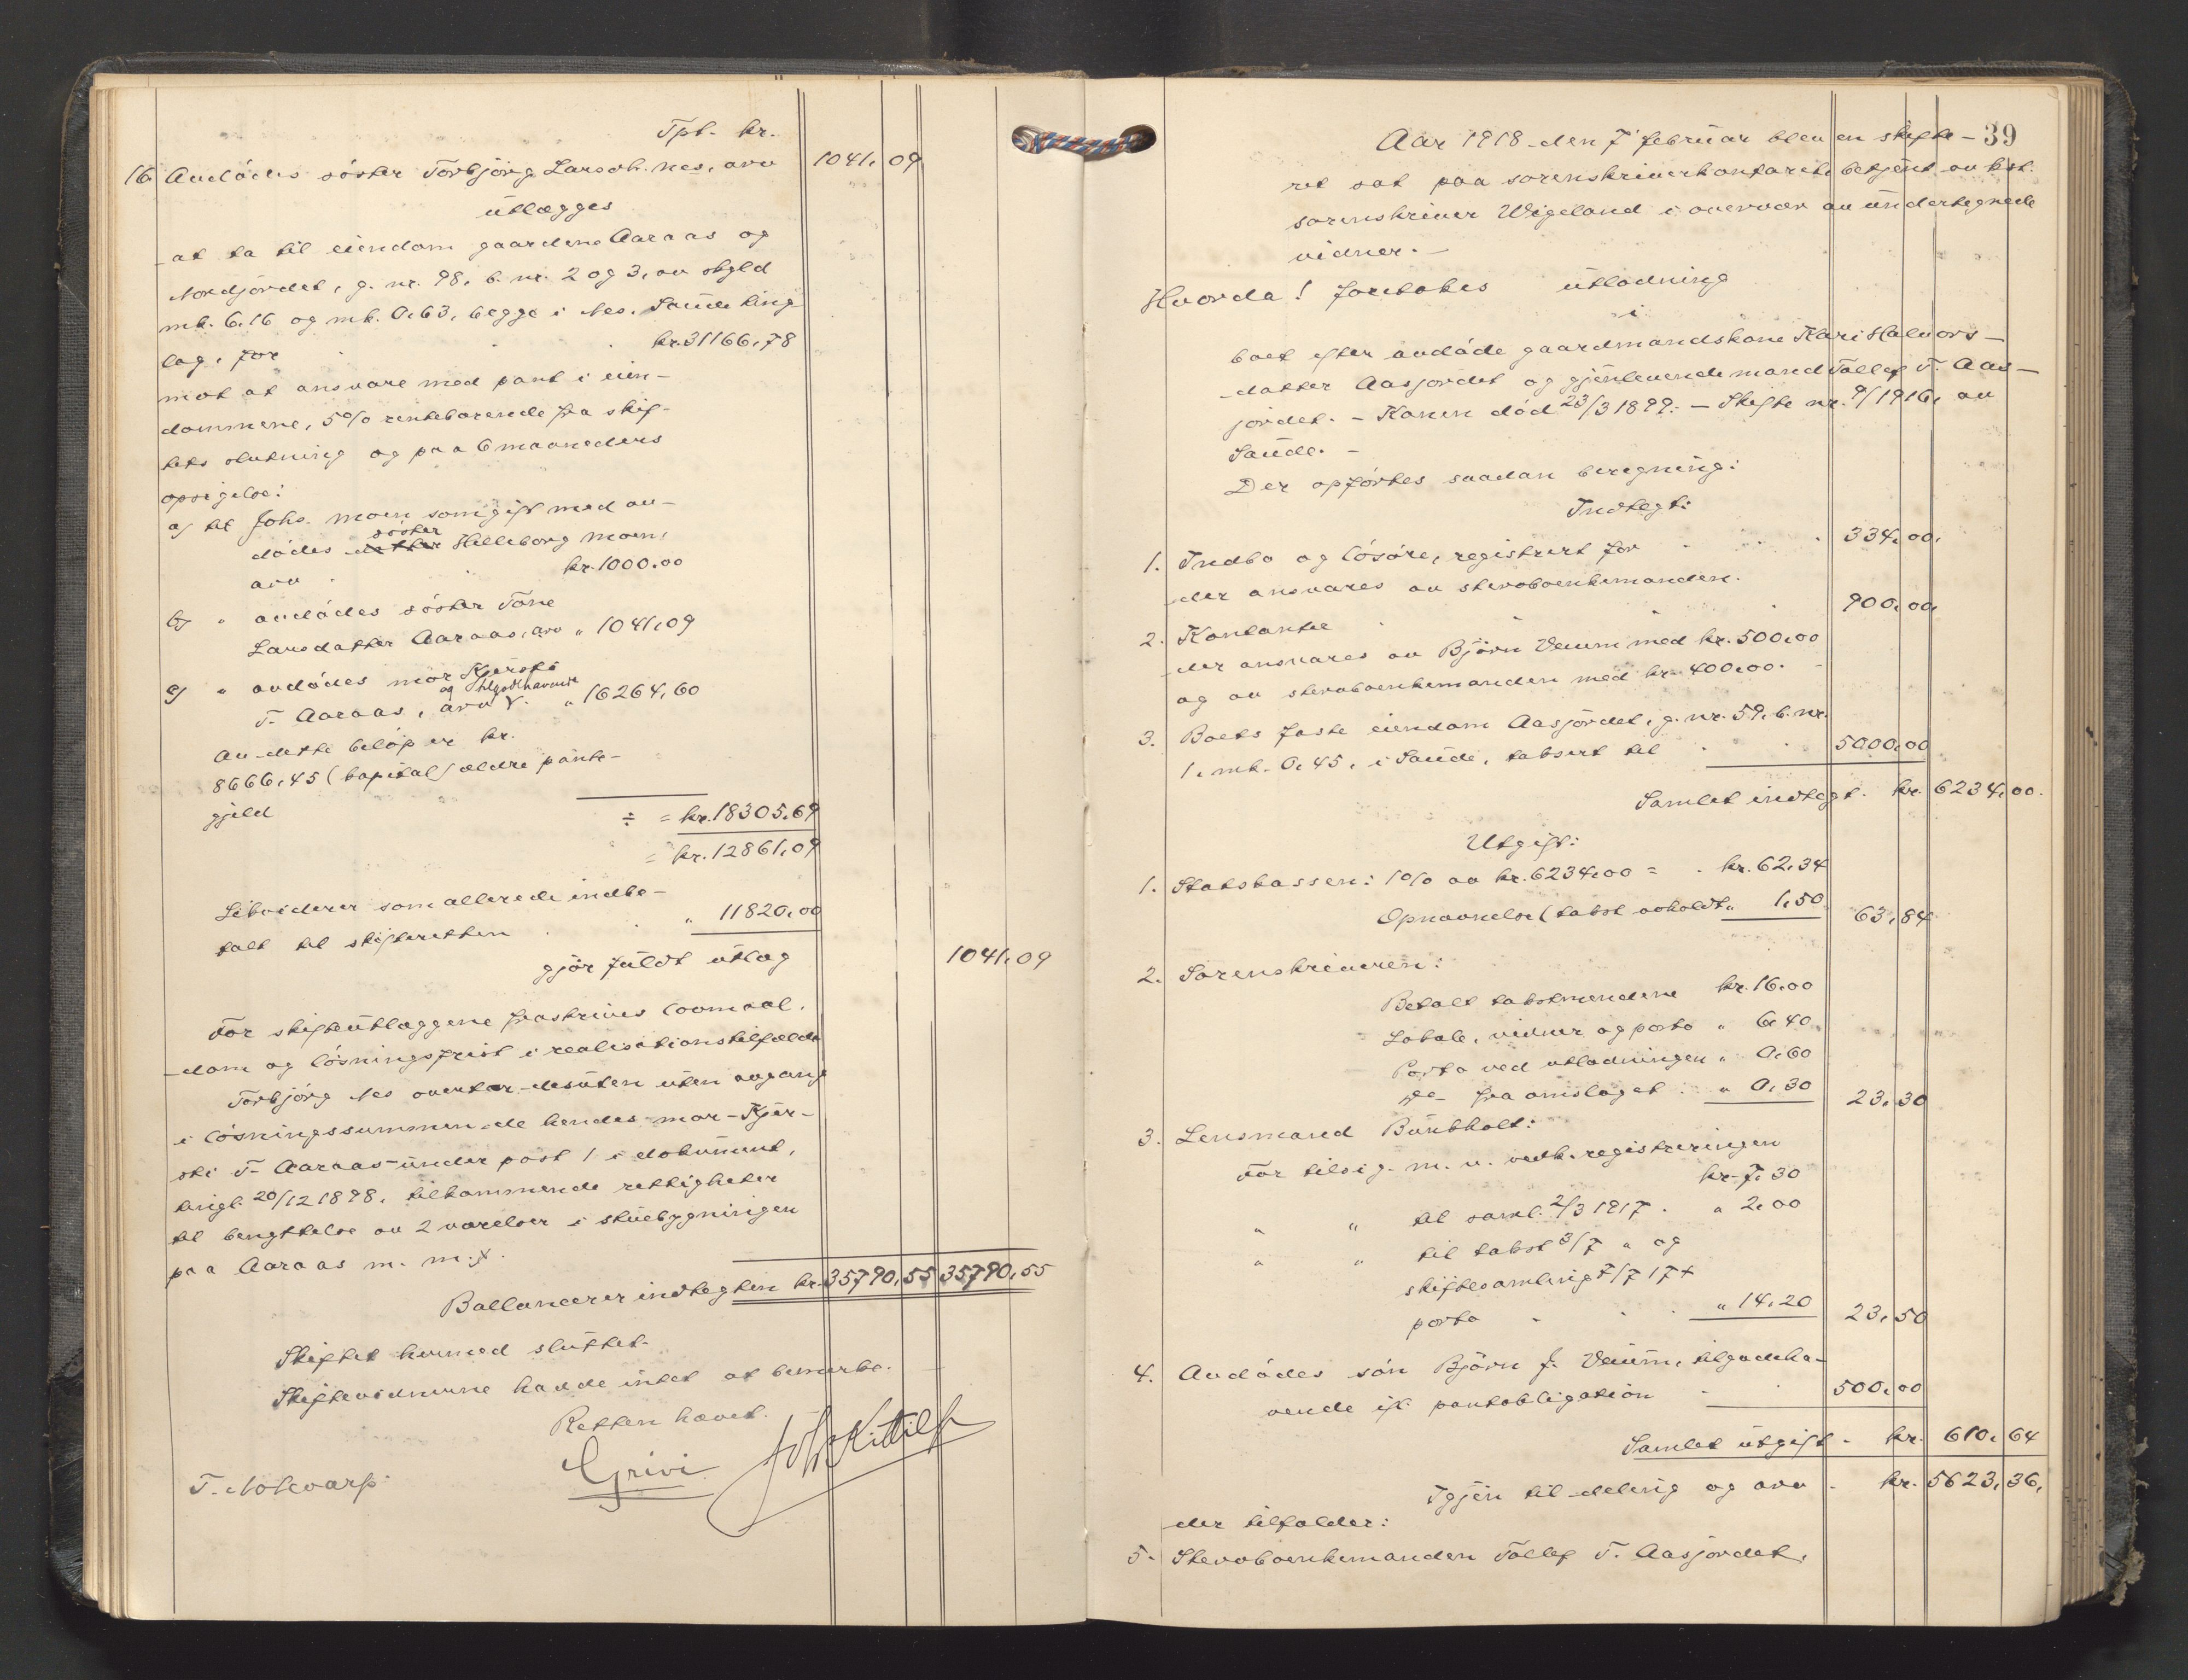 Tpt. kr.
16. Avdødes søster Torbjørg Larsdtr. Nes, arv 1041,09
utlægges
at ta til eiendom gaardene Aaraas og
Nordjordet, g. nr. 98, b. nr. 2 og 3, av skyld
mk. 6,16 og mk. 0,63, begge i Nes, Saude ting
lag, for kr. 31166,78
mot at ansvare med pant i eien-
dommene, 5% rentebærende fra skif-
tets slutning og paa 6 maaneders
opsigelse:
a) til Johs. Moen som gift med av-
dødes søster Helleborg Moen,
arv kr. 1000.00
b) " avdødes søster Tone
Larsdatter Aaraas, arv " 1041,09
c) " avdødes mor Kjersti
og tilgodehavende
T. Aaraas, arv " 16264,60
Av dette beløp er kr.
8666,45 (kapital) ældre pante-
gjeld ÷ = kr. 18305,69
= kr. 12861,09
Likviderer som allerede indbe-
talt til skifteretten " 11820,00
gjør fuldt utlæg 1041,09
For skifteutlæggene fraskrives lovmaal,
dom og løsningsfrist i realisationstilfælde
Torbjørg Nes overtar desuten uten avgang
i løsningssummen de hendes mor Kjer-
sti T. Aaraas under post 1 i dokument,
tingl. 20/12 1898, tilkommende rettigheter
til benyttelse av 2 værelser i stuebygningen
paa Aaraas m. m.
Ballancerer indtegten kr. 35790,55 35790,55
Skiftet hermed sluttet.
Skiftevidnerne havde intet at bemerke.
Retten hævet.
Grivi Joh. Kittilsen
T. Nokvarp
39
Aar 1918 den 7 februar blev en skifte-
ret sat paa sorenskriverkontoret betjent av kst.
sorenskriver Wigeland i overvær av undertegnede
vidner. -
Hvorda! foretokes utlodning
i
boet efter avdøde gaardmandskone Kari Halvors-
datter Aasjordet og gjenlevende mand Tollef T. Aas-
jordet. - Konen død 23/3 1899. - Skifte nr. 9/1916, av
Saude. -
Der opførtes saadan beregning:
Indtegt:
1. Indbo og løsøre, registrert for 334,00,
der ansvares av stervboenkemanden.
2. Kontanter 900,00,
der ansvares av Bjørn Venum med kr. 500,00
og av stervboenkemanden med kr. 400,00.
3. Boets faste eiendom Aasjordet, g. nr. 59, b. nr.
1, mk. 0,45, i Saude, taksert til 5000,00
Samlet indtegt. kr. 6234,00.
Utgift:
1. Statskassen: 1% av kr. 6234,00 = kr. 62,34
Opnævnelse (takst avholdt " 1,50 63,84
2. Sorenskriveren:
Betalt takstmendene kr. 16,00
Lokale, vidner og porto " 6,40
Porto ved utlodningen " 0,60
fra omslaget " 0,30 23,30
3. Lensmand Bunkholt:
For tilsig. m. v. vedk. registreringen
kr. 7,30
" " til saml. 2/3 1917. " 2,00
" " til takst 3/7 " og
skiftesamling 7/7 17 +
porto " 14,20 23,50
4. Avdødes søn Bjørn J. Venum, tilgodeha-
vende ifl. pantobligation 500,00
Samlet utgift - kr. 610,64
Igjen til deling og arv - kr. 5623,36,
der tilfalder:
5. Stervboenkemanden Tollef T. Aasjordet,